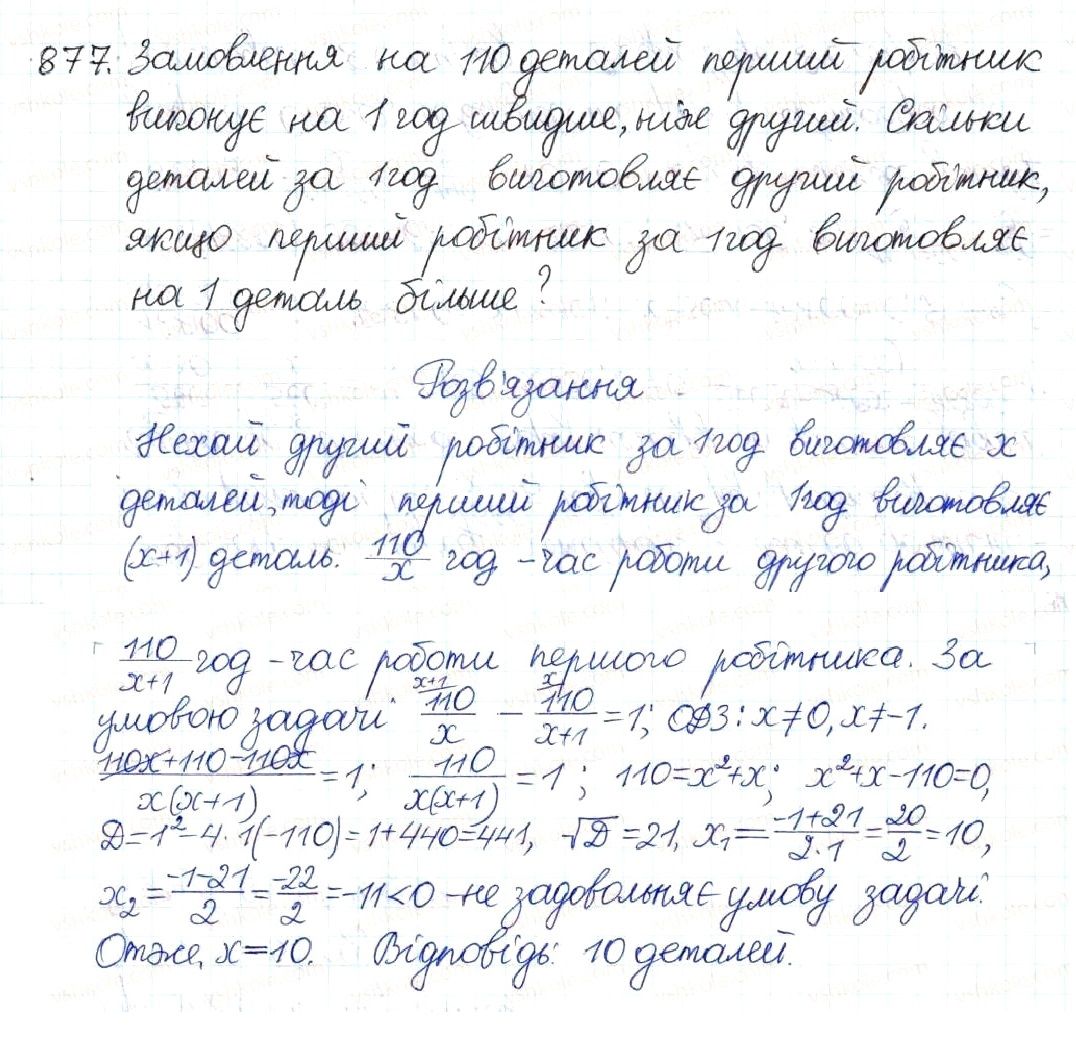 877. Замовлення на 110 деталей перший робітник
виконує на 1 год швидше, ніж другий. Скільки
деталей за 1 год виготовляє другий робітник,
якщо перший робітник за 1 год виготовляє
на 1 деталь більше?
Розв'язання
Нехай другий робітник за 1 год виготовляє x
деталей, тоді перший робітник за 1 год виготовляє
(x+1) деталь. 110/x год – час роботи другого робітника,
110/(x+1) год – час роботи першого робітника. За
умовою задачі 110/x (x+1) – 110/(x+1) (x) = 1; ОДЗ: x≠0, x≠-1.
(110x+110-110x)/(x(x+1)) = 1; 110/(x(x+1)) = 1; 110=x²+x; x²+x-110=0,
D=1²-4·1(-110)=1+440=441, √D=21, x₁=(-1+21)/(2·1)=20/2=10,
x₂=(-1-21)/2=-22/2=-11<0 – не задовольняє умову задачі.
Отже, x=10. Відповідь: 10 деталей.